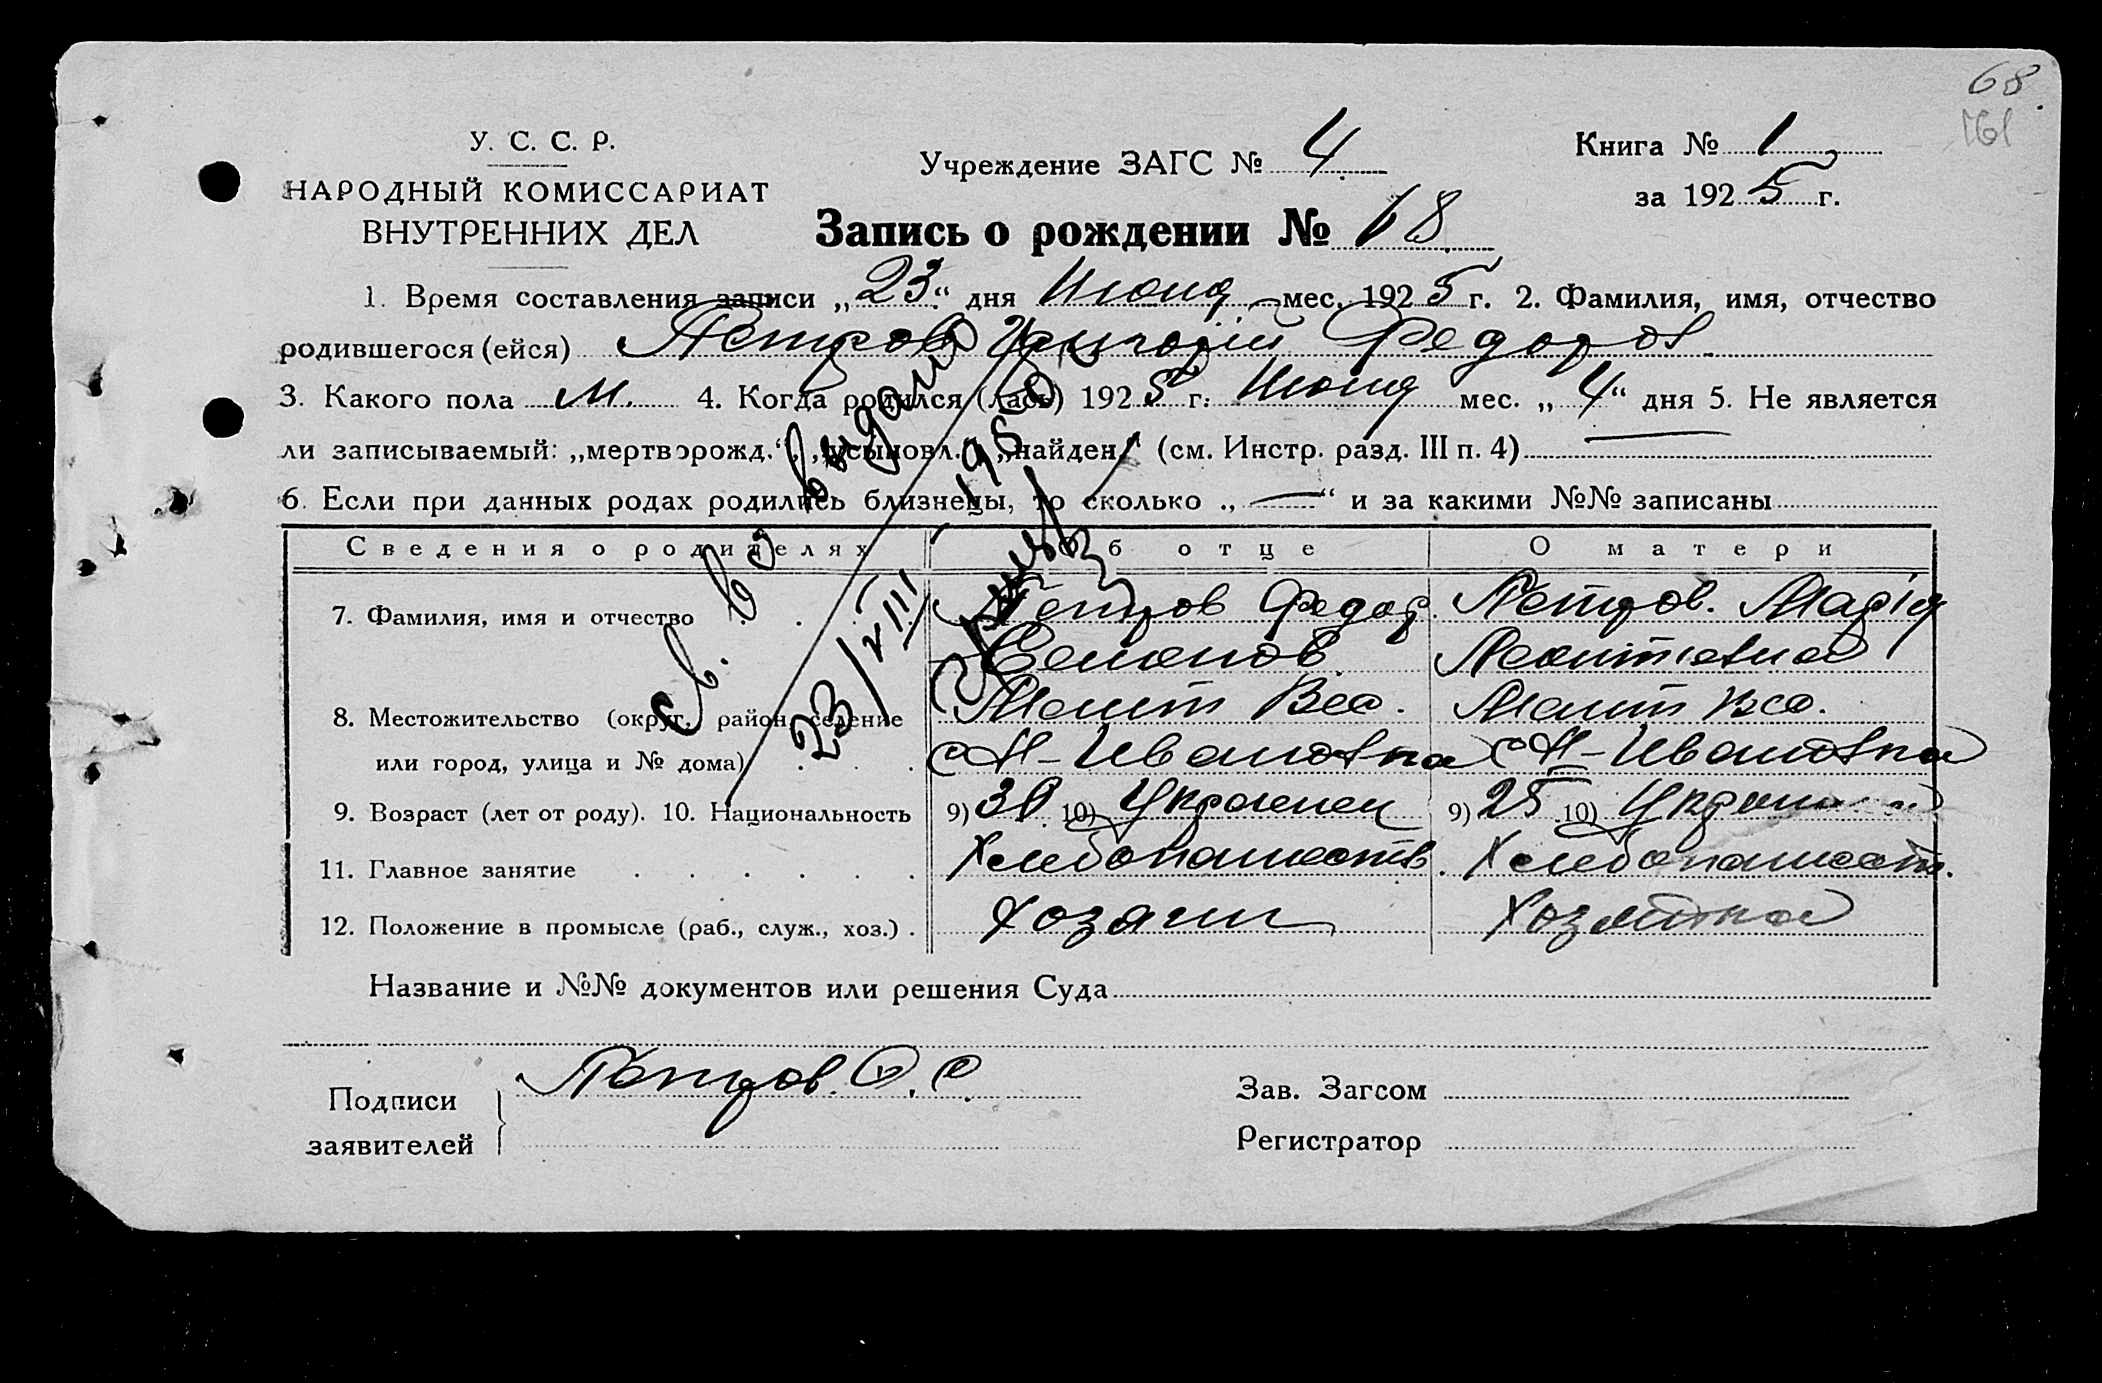 68
161
У. С. С. Р.
НАРОДНЫЙ КОМИССАРИАТ
ВНУТРЕННИХ ДЕЛ
Учреждение ЗАГС № 4
Книга № 1
за 1925 г.
Запись о рождении № 68
1. Время составления записи „23“ дня Июня мес. 1925 г. 2. Фамилия, имя, отчество
родившегося (ейся) Петров Григорій Федоров
3. Какого пола м. 4. Когда родился (лась) 1925 г. Июня мес. „4“ дня 5. Не является
ли записываемый: „мертворожд.“, „усыновл.“, „найден.“ (см. Инстр. разд. III п. 4)
6. Если при данных родах родились близнецы, то сколько „—“ и за какими №№ записаны
Св. во выдано
23/VIII 1950
Сведения о родителях Об отце О матери
7. Фамилия, имя и отчество Петров Федор Петров. Марія
Семенов Леонтіевна
8. Местожительство (округ, район, селение
или город, улица и № дома) Н-Ивановка Н-Ивановка
9. Возраст (лет от роду). 10. Национальность 9) 30 10) Украинец 9) 25 10)
11. Главное занятие Хлебопашеств. Хлебопашеств.
12. Положение в промысле (раб., служ., хоз.) Хозяин Хозяйка
Название и №№ документов или решения Суда
Подписи
заявителей
Петров. Ф. С.
Зав. Загсом
Регистратор